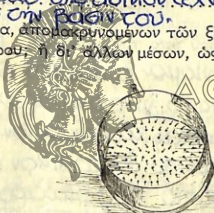 τὴν βάσιν του.
α, ἀπομακρυνομένων τῶν ξ
ρου, ἢ δι' ἄλλων μέσων, ὡς